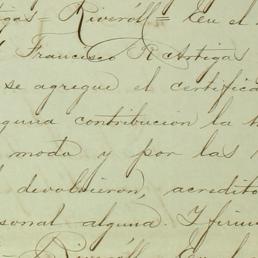 tigas = Riveroll = En el
Francisco R Artigas
se agregue el certifica
guna contribucion la
moda y por las
devolvieron, acredito
sonal alguna. I firm
Riveroll = En el